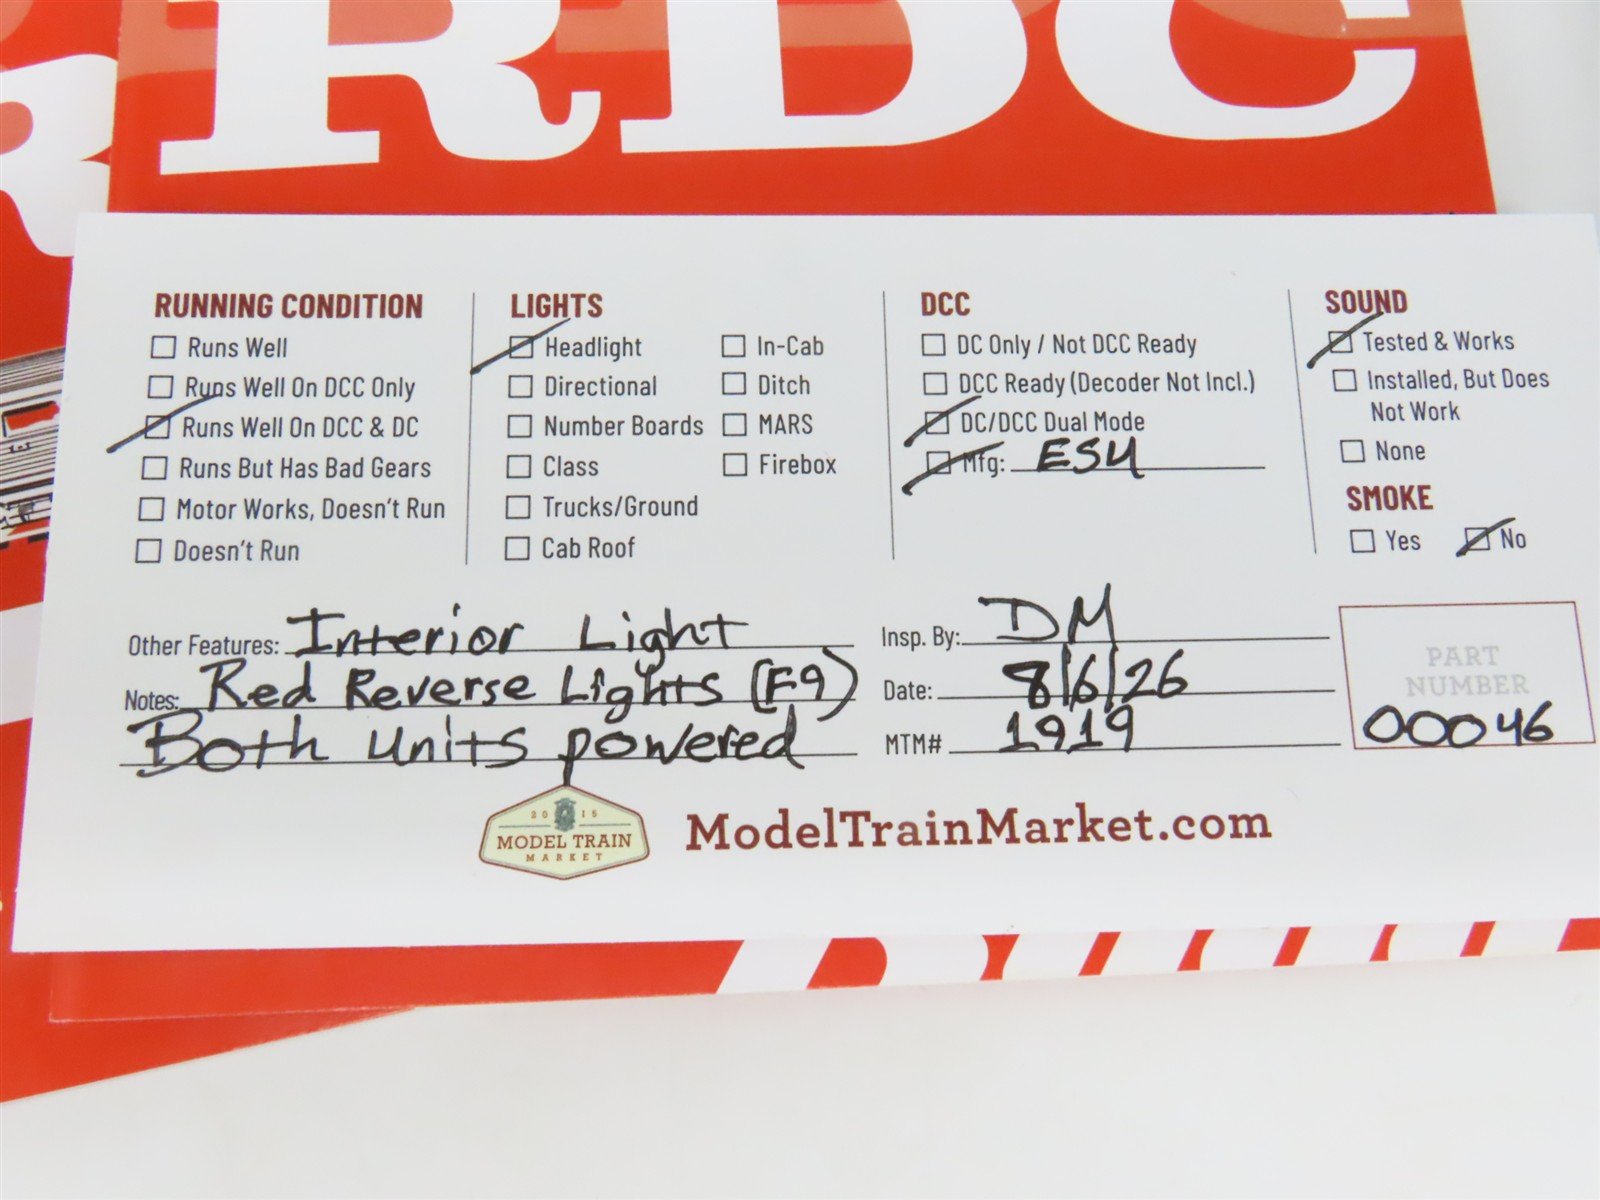 RDC
RUNNING CONDITION
Runs Well
Runs Well On DCC Only
Runs Well On DCC & DC
Runs But Has Bad Gears
Motor Works, Doesn't Run
Doesn't Run
LIGHTS
Headlight
Directional
Number Boards
Class
Trucks/Ground
Cab Roof
In-Cab
Ditch
MARS
Firebox
DCC
DC Only / Not DCC Ready
DCC Ready (Decoder Not Incl.)
DC/DCC Dual Mode
Mfg: ESU
SOUND
Tested & Works
Installed, But Does
Not Work
None
SMOKE
Yes No
Other Features: Interior Light
Notes: Red Reverse Lights (F9)
Both units powered
Insp. By: DM
Date: 8/6/26
MTM# 1919
PART
NUMBER
00046
2015
MODEL TRAIN
MARKET
ModelTrainMarket.com